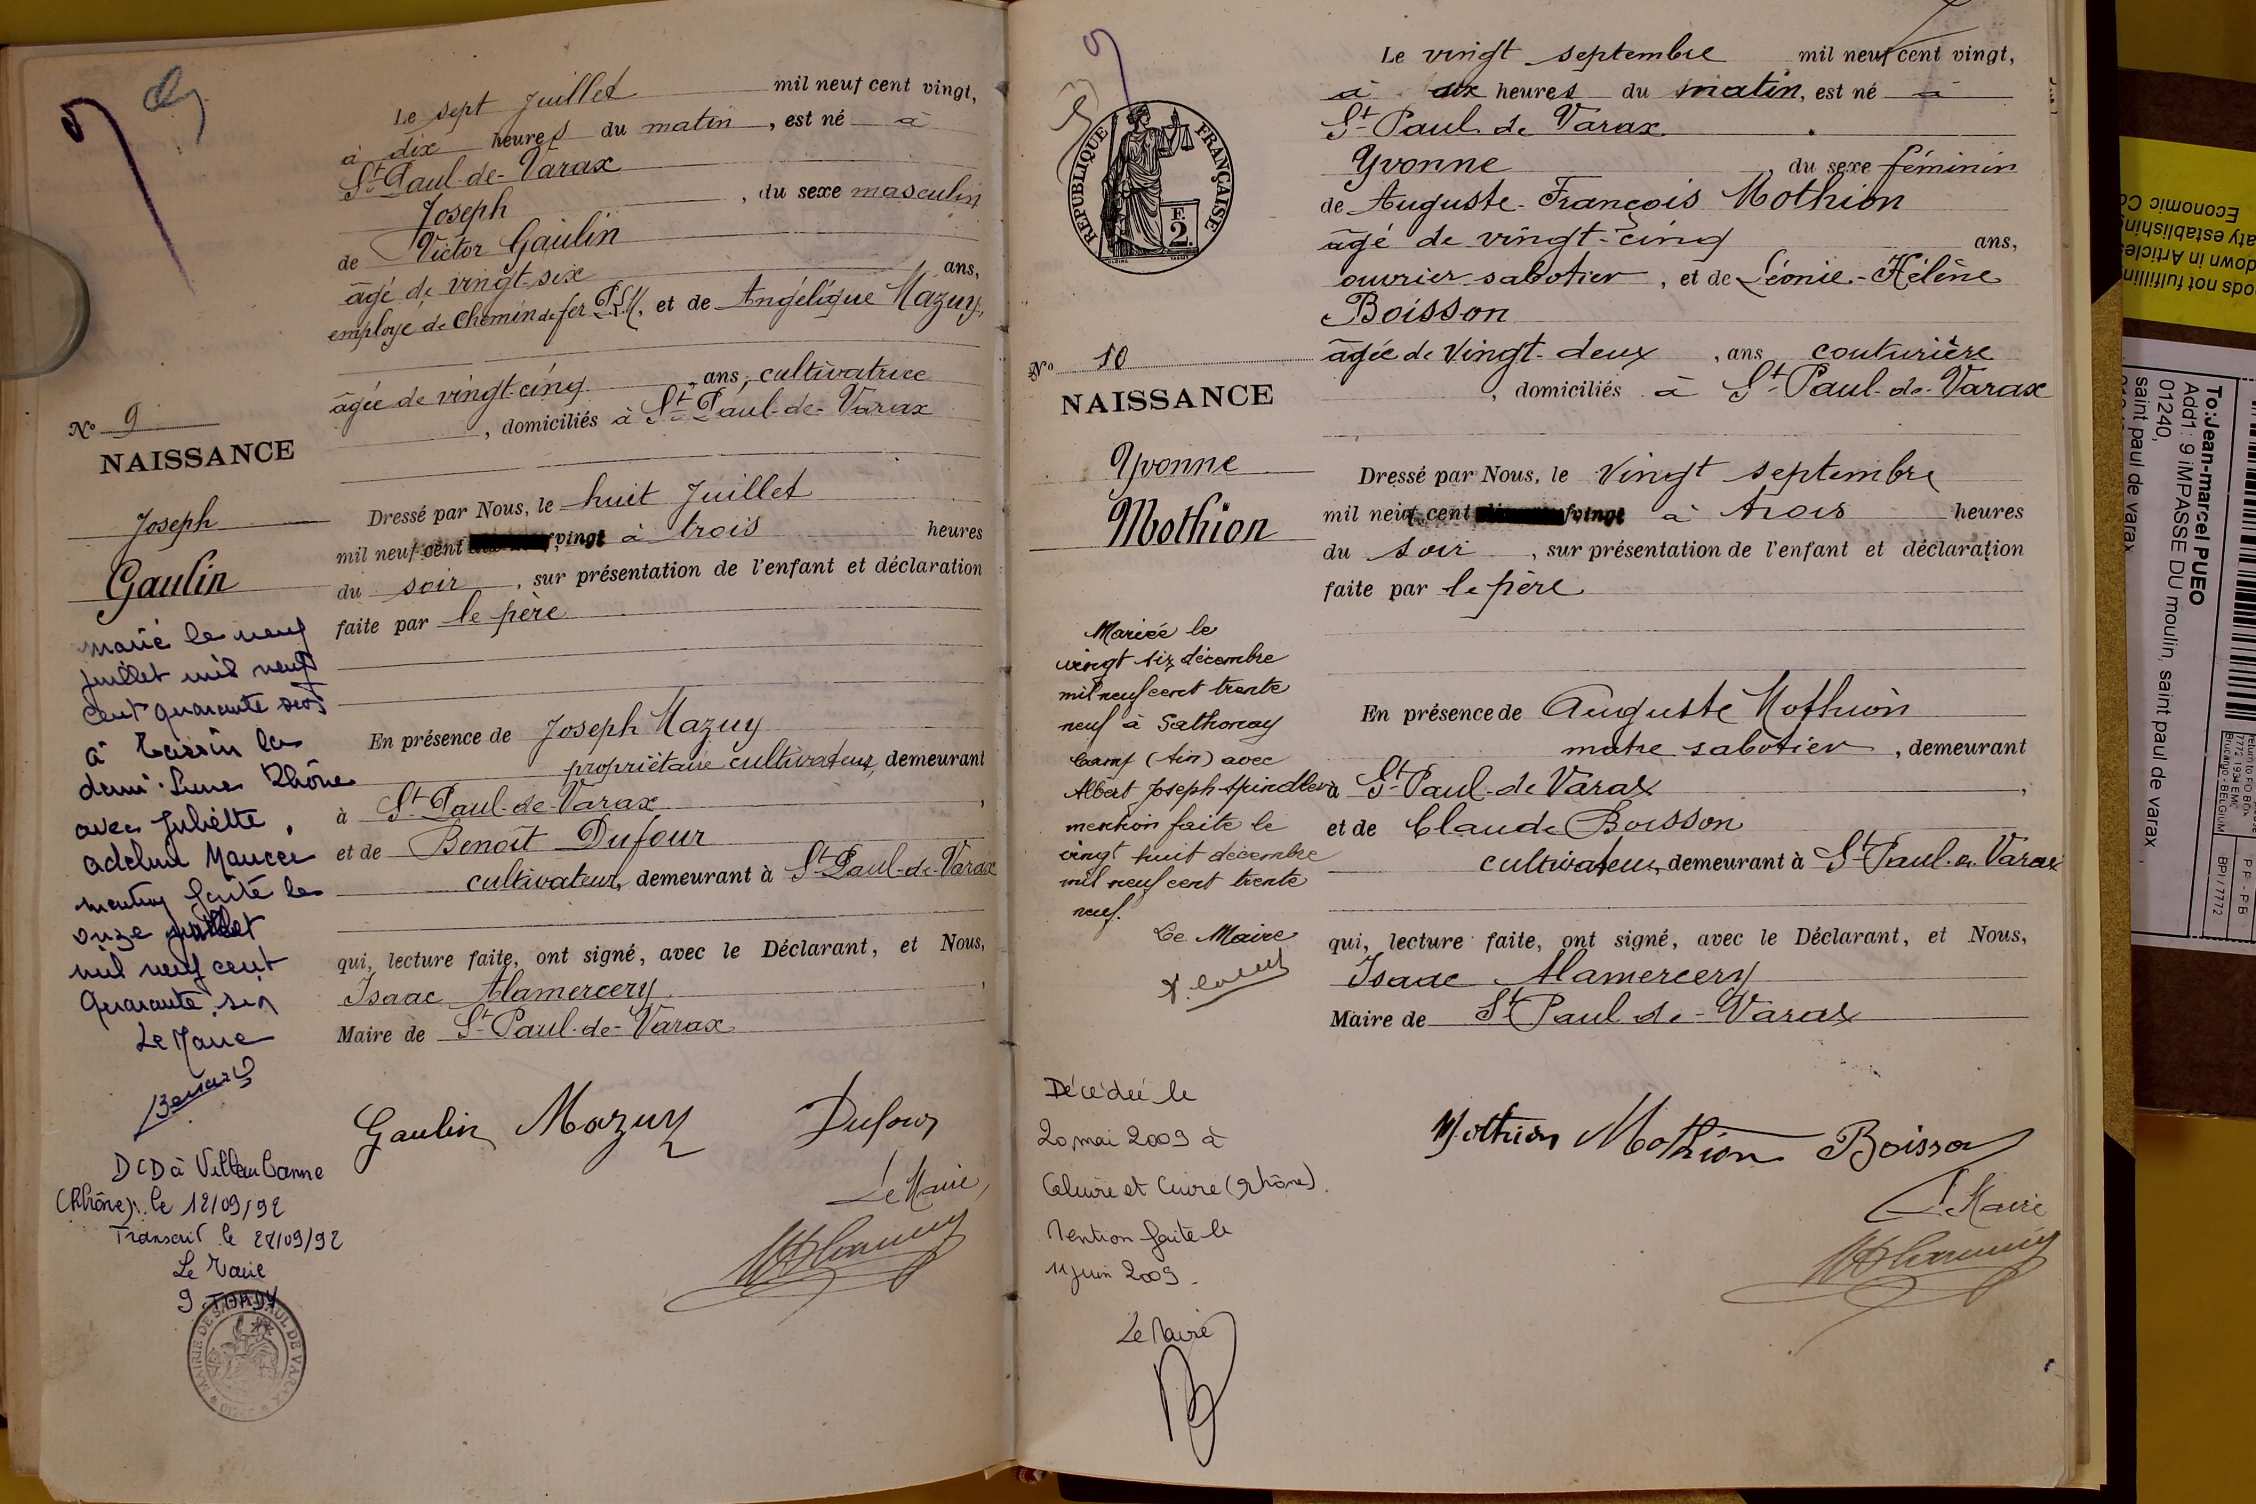 Le sept Juillet mil neuf cent vingt,
à dix heures du matin, est né à
St Paul-de-Varax
Joseph, du sexe masculin
de Victor Gaulin
âgé de vingt-six ans,
employé de Chemin de fer P.L.M, et de Angélique Mazuy,
âgée de vingt-cinq ans, cultivatrice
, domiciliés à St Paul-de-Varax
No 9
NAISSANCE
Joseph
Gaulin
Dressé par Nous, le huit Juillet
mil neuf cent vingt à trois heures
du soir, sur présentation de l'enfant et déclaration
faite par le père
En présence de Joseph Mazuy
propriétaire cultivateur, demeurant
à St Paul-de-Varax,
et de Benoît Dufour
cultivateur, demeurant à St Paul-de-Varax
qui, lecture faite, ont signé, avec le Déclarant, et Nous,
Isaac Alamercery,
Maire de St Paul-de-Varax
marié le neuf
juillet mil neuf
cent quarante six
à Tassin la
demi-Lune Rhône
avec Juliette,
mention faite le
onze juillet
mil neuf cent
quarante six
Le Maire
Gaulin Mazuy Dufour
Le Maire,
DCD à Villeurbanne
(Rhône) le 12/09/92
Transcrit le 28/09/92
Le Maire
MAIRIE DE SAINT PAUL DE VARAX
Le vingt septembre mil neuf cent vingt,
à dix heures du matin, est né à
St Paul de Varax
Yvonne du sexe féminin
de Auguste-François Mothion
âgé de vingt-cinq ans,
ouvrier sabotier, et de Léonie-Hélène
Boisson
âgée de vingt-deux, ans couturière
, domiciliés à St Paul-de-Varax
RÉPUBLIQUE FRANÇAISE
F.
2.
No 10
NAISSANCE
Yvonne
Mothion
Dressé par Nous, le vingt septembre
mil neuf cent vingt à trois heures
du soir, sur présentation de l'enfant et déclaration
faite par le père
En présence de Auguste Mothion
maître sabotier, demeurant
à St Paul-de Varax,
et de Claude Boisson
cultivateur, demeurant à St Paul de Varax
qui, lecture faite, ont signé, avec le Déclarant, et Nous,
Isaac Alamercery
Maire de St Paul de-Varax
Mariée le
vingt six décembre
mil neuf cent trente
neuf à Sathonay
Camp (Ain) avec
Albert Joseph Spindler
mention faite le
vingt huit décembre
mil neuf cent trente
neuf.
Le Maire
Mothion Mothion Boisson
Le Maire
Décédée le
20 mai 2009 à
Caluire et Cuire (Rhône).
Mention faite le
11 juin 2009.
Le Maire
To:Jean-marcel PUEO
Add1: 9 iMPASSE DU moulin, saint paul de varax
01240,
saint paul de varax
saint paul de varax,
PP - PB
BPI / 7772